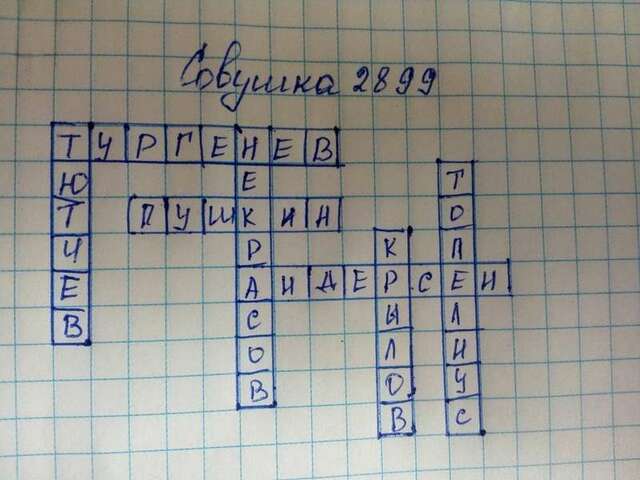 Совушка 2899
ТУРГЕНЕВ
ТЮТЧЕВ
НЕКРАСОВ
ПУШКИН
ТОПЕЛИУС
КРЫЛОВ
АНДЕРСЕН